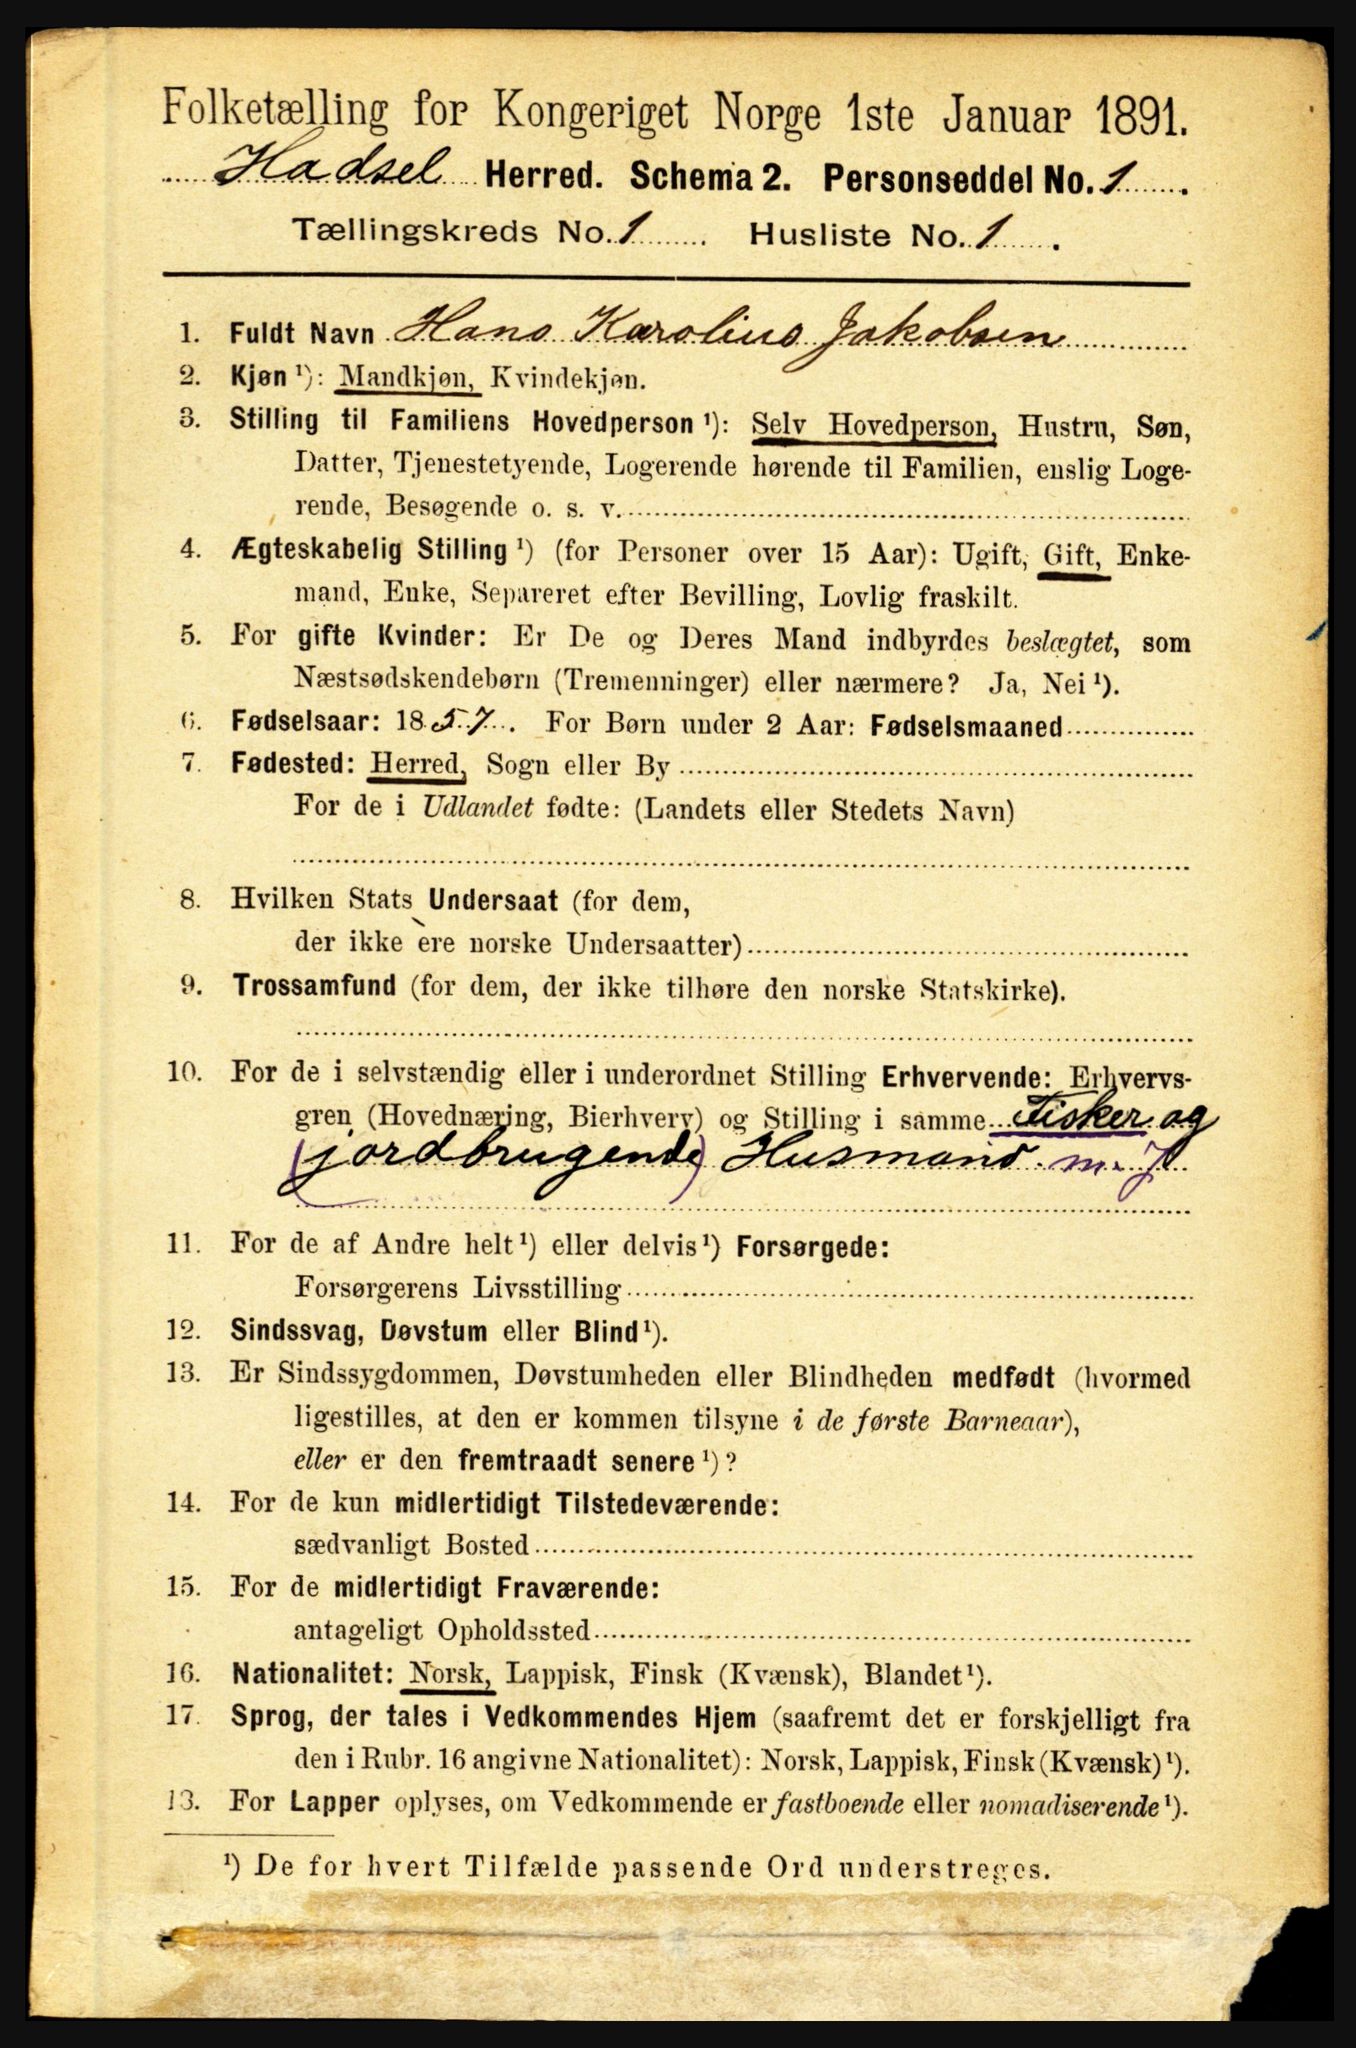 Folketælling for Kongeriget Norge 1ste Januar 1891.
Hadsel Herred. Schema 2. Personseddel No. 1.
Tællingskreds No. 1 Husliste No. 1.
1. Fuldt Navn Hans Karolius Jakobsen
2. Kjøn ¹): Mandkjøn, Kvindekjøn.
3. Stilling til Familiens Hovedperson ¹): Selv Hovedperson, Hustru, Søn,
Datter, Tjenestetyende, Logerende hørende til Familien, enslig Loge-
rende, Besøgende o. s. v.
4. Ægteskabelig Stilling ¹) (for Personer over 15 Aar): Ugift, Gift, Enke-
mand, Enke, Separeret efter Bevilling, Lovlig fraskilt.
5. For gifte Kvinder: Er De og Deres Mand indbyrdes beslægtet, som
Næstsødskendebørn (Tremenninger) eller nærmere? Ja, Nei ¹).
6. Fødselsaar: 1857. For Børn under 2 Aar: Fødselsmaaned
7. Fødested: Herred, Sogn eller By
For de i Udlandet fødte: (Landets eller Stedets Navn)
8. Hvilken Stats Undersaat (for dem,
der ikke ere norske Undersaatter)
9. Trossamfund (for dem, der ikke tilhøre den norske Statskirke).
10. For de i selvstændig eller i underordnet Stilling Erhvervende: Erhvervs-
gren (Hovednæring, Bierhverv) og Stilling i samme Fisker og
(jordbrugende) Husmand m. J
11. For de af Andre helt ¹) eller delvis ¹) Forsørgede:
Forsørgerens Livsstilling
12. Sindssvag, Døvstum eller Blind ¹).
13. Er Sindssygdommen, Døvstumheden eller Blindheden medfødt (hvormed
ligestilles, at den er kommen tilsyne i de første Barneaar),
eller er den fremtraadt senere ¹)?
14. For de kun midlertidigt Tilstedeværende:
sædvanligt Bosted
15. For de midlertidigt Fraværende:
antageligt Opholdssted
16. Nationalitet: Norsk, Lappisk, Finsk (Kvænsk), Blandet ¹).
17. Sprog, der tales i Vedkommendes Hjem (saafremt det er forskjelligt fra
den i Rubr. 16 angivne Nationalitet): Norsk, Lappisk, Finsk (Kvænsk) ¹).
13. For Lapper oplyses, om Vedkommende er fastboende eller nomadiserende ¹).
¹) De for hvert Tilfælde passende Ord understreges.